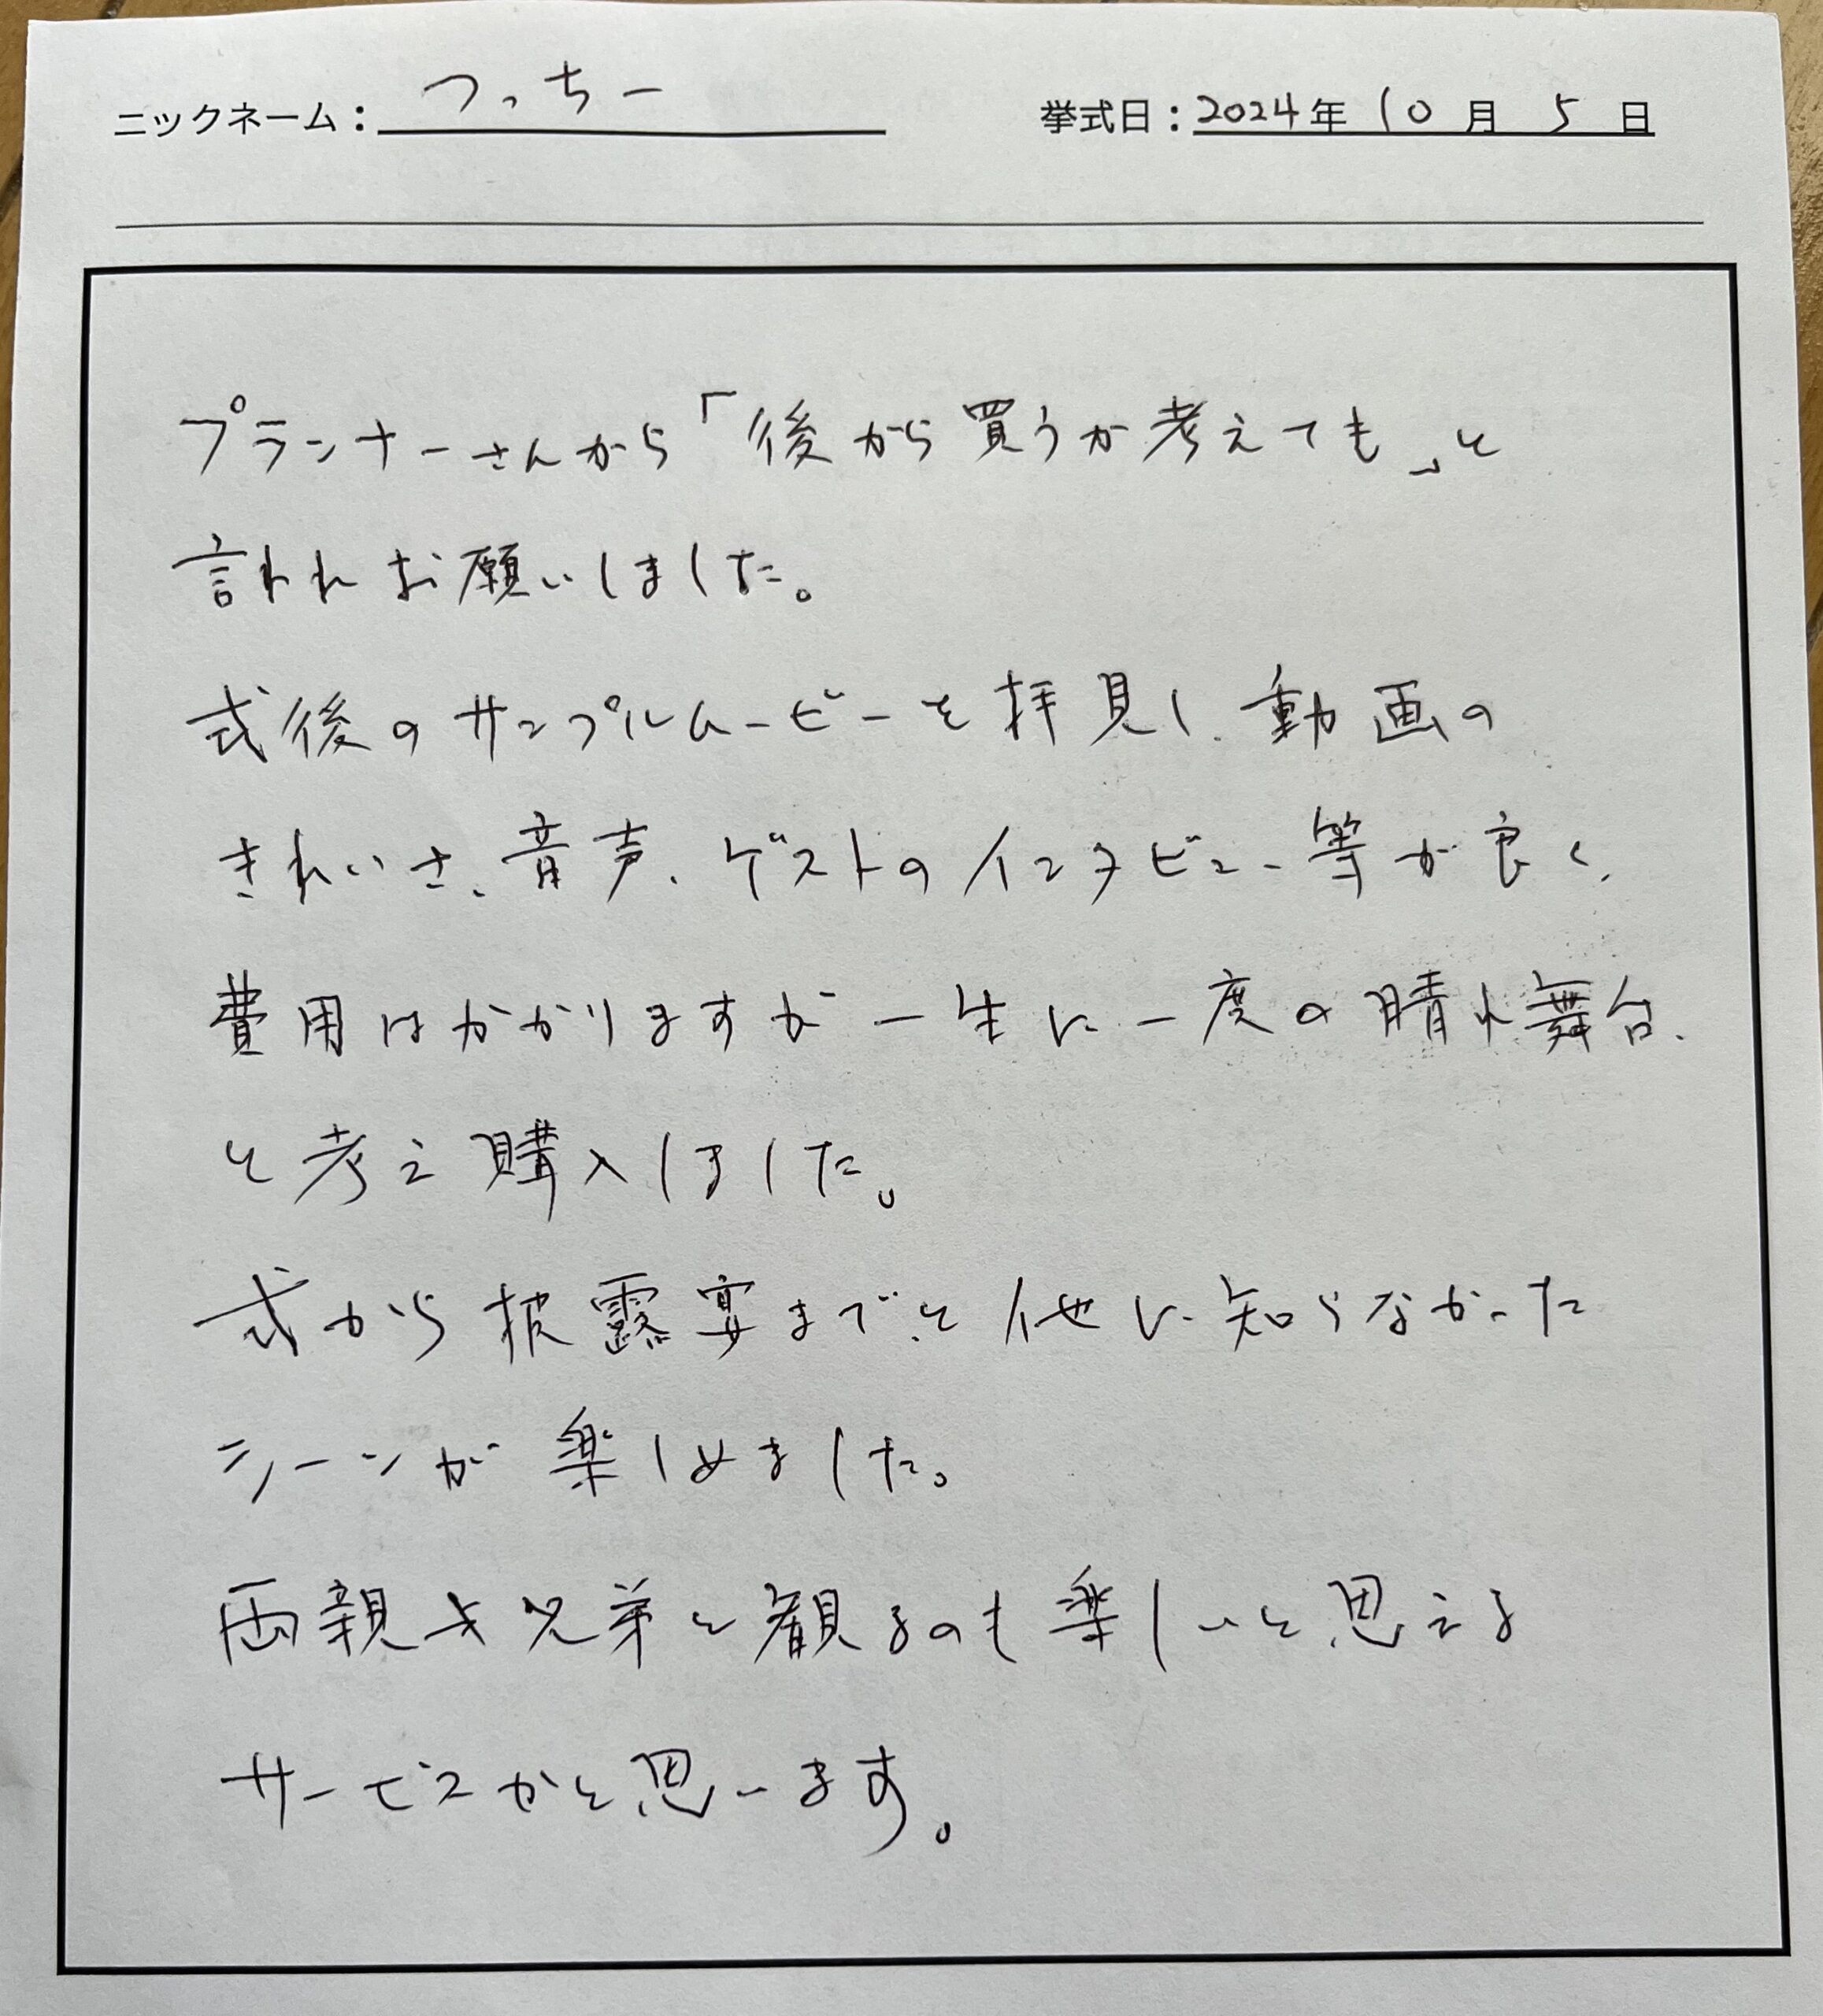 ニックネーム：つっちー
挙式日：2024年10月5日
プランナーさんから「後から買うか考えても」と
言われお願いしました。
式後のサンプルムービーを拝見し、動画の
きれいさ、音声、ゲストのインタビュー等が良く、
費用はかかりますが一生に一度の晴れ舞台、
と考え購入しました。
式から披露宴までと他に知らなかった
シーンが楽しめました。
両親や兄弟と観るのも楽しいと思える
サービスかと思います。